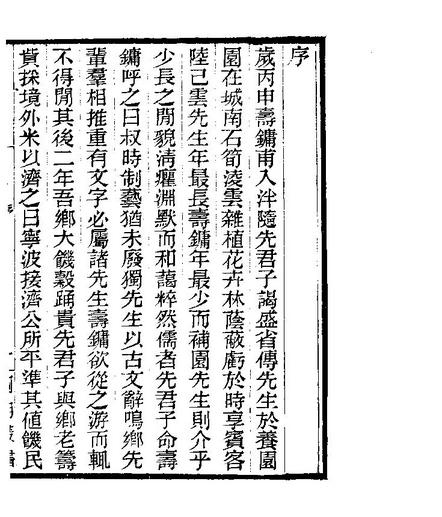 序
歲丙申壽鏞甫入泮隨先君子謁盛省傳先生於養園
園在城南石筍淩雲雜植花卉林蔭蔽虧於時享賓客
陸己雲先生年最長壽鏞年最少而補園先生則介乎
少長之閒貌清癯淵默而和藹粹然儒者先君子命壽
鏞呼之曰叔時制藝猶未廢獨先生以古文辭鳴鄉先
輩羣相推重有文字必屬諸先生壽鏞欲從之游而輒
不得閒其後二年吾鄉大饑穀踊貴先君子與鄉老籌
貲採境外米以濟之曰寧波接濟公所平準其值饑民